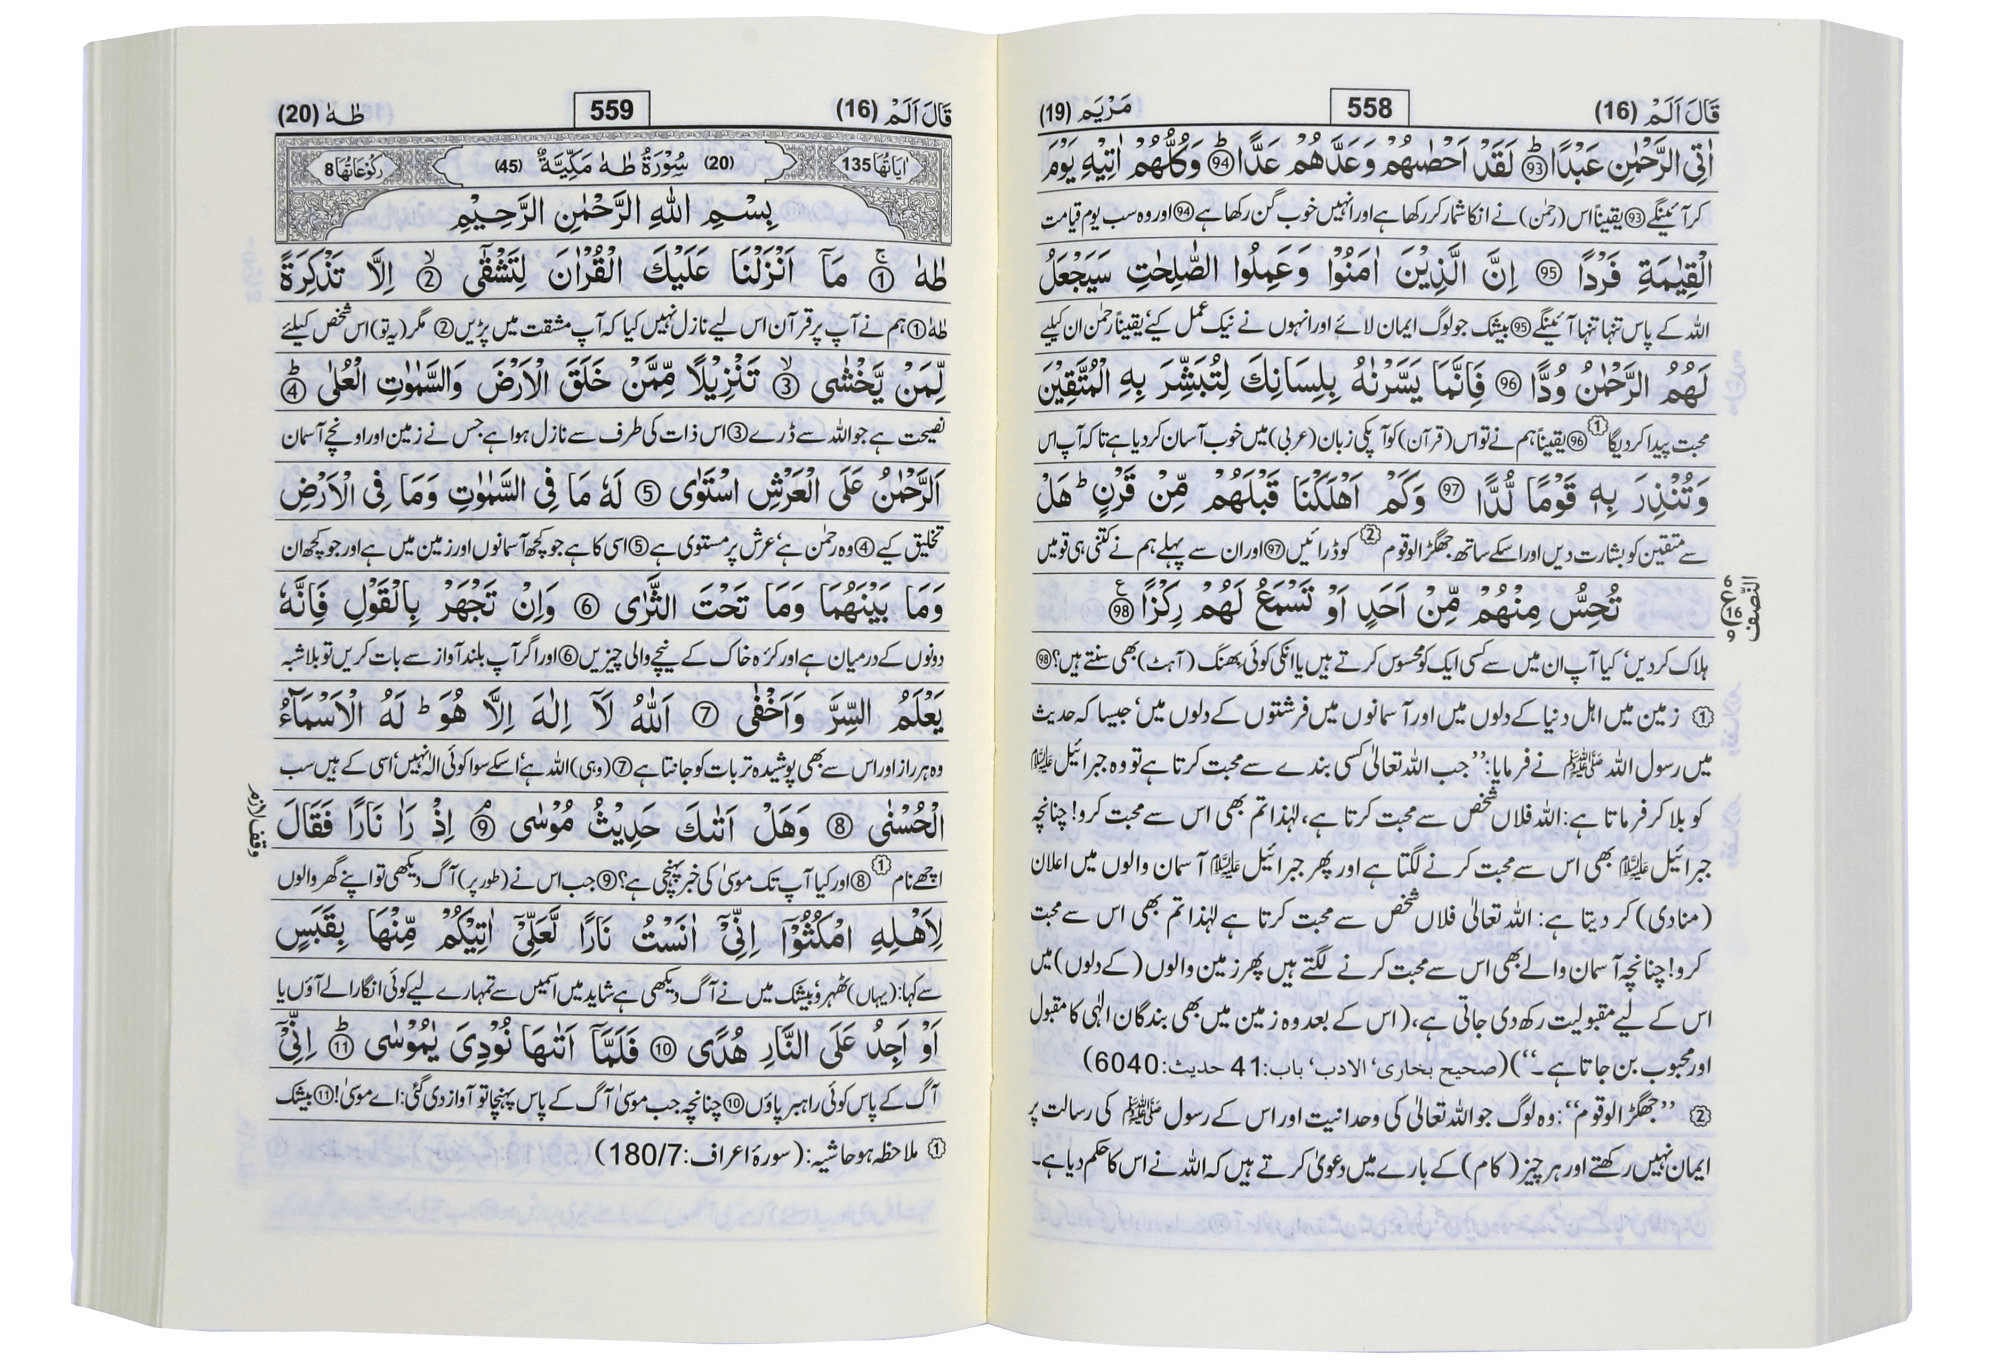 قَالَ اَلَمْ (16) 558 مَرْيَم (19)
اٰتِی الرَّحْمٰنِ عَبْدًا ۹۳ لَقَدْ اَحْصٰىهُمْ وَعَدَّهُمْ عَدًّا ۹۴ وَكُلُّهُمْ اٰتِيْهِ يَوْمَ
کر آئینگے 93 یقیناً اس (رحمٰن) نے انکا شمار کر رکھا ہے اور انہیں خوب گن رکھا ہے 94 اور وہ سب یوم قیامت
الْقِيٰمَةِ فَرْدًا 95 اِنَّ الَّذِيْنَ اٰمَنُوْا وَعَمِلُوا الصّٰلِحٰتِ سَيَجْعَلُ
اللہ کے پاس تنہا تنہا آئینگے 95 بیشک جو لوگ ایمان لائے اور انہوں نے نیک عمل کیے یقیناً رحمٰن ان کیلیے
لَهُمُ الرَّحْمٰنُ وُدًّا 96 فَاِنَّمَا يَسَّرْنٰهُ بِلِسَانِكَ لِتُبَشِّرَ بِهِ الْمُتَّقِيْنَ
محبت پیدا کر دیگا 1 96 یقیناً ہم نے تو اس (قرآن) کو آپکی زبان (عربی) میں خوب آسان کر دیا ہے تاکہ آپ اس
وَتُنْذِرَ بِهٖ قَوْمًا لُّدًّا 97 وَكَمْ اَهْلَكْنَا قَبْلَهُمْ مِّنْ قَرْنٍ ؕ هَلْ
سے متقین کو بشارت دیں اور اسکے ساتھ جھگڑالو قوم 2 کو ڈرائیں 97 اور ان سے پہلے ہم نے کتنی ہی قومیں
تُحِسُّ مِنْهُمْ مِّنْ اَحَدٍ اَوْ تَسْمَعُ لَهُمْ رِكْزًا 98
النصف
ع
16
ہلاک کر دیں، کیا آپ ان میں سے کسی ایک کو محسوس کرتے ہیں یا انکی کوئی بھنک (آہٹ) بھی سنتے ہیں؟ 98
1 زمین میں اہل دنیا کے دلوں میں اور آسمانوں میں فرشتوں کے دلوں میں، جیسا کہ حدیث
میں رسول اللہ ﷺ نے فرمایا: ’’جب اللہ تعالیٰ کسی بندے سے محبت کرتا ہے تو وہ جبرائیل علیہ السلام
کو بلا کر فرماتا ہے: اللہ فلاں شخص سے محبت کرتا ہے، لہٰذا تم بھی اس سے محبت کرو! چنانچہ
جبرائیل علیہ السلام بھی اس سے محبت کرنے لگتا ہے اور پھر جبرائیل علیہ السلام آسمان والوں میں اعلان
(منادی) کر دیتا ہے: اللہ تعالیٰ فلاں شخص سے محبت کرتا ہے لہٰذا تم بھی اس سے محبت
کرو! چنانچہ آسمان والے بھی اس سے محبت کرنے لگتے ہیں پھر زمین والوں (کے دلوں) میں
اس کے لیے مقبولیت رکھ دی جاتی ہے، (اس کے بعد وہ زمین میں بھی بندگان الٰہی کا مقبول
اور محبوب بن جاتا ہے۔‘‘) (صحیح بخاری، الادب، باب: 41 حدیث: 6040)
2 ’’جھگڑالو قوم‘‘: وہ لوگ جو اللہ تعالیٰ کی وحدانیت اور اس کے رسول ﷺ کی رسالت پر
ایمان نہیں رکھتے اور ہر چیز (کام) کے بارے میں دعویٰ کرتے ہیں کہ اللہ نے اس کا حکم دیا ہے۔
قَالَ اَلَمْ (16) 559 طٰهٰ (20)
اٰيَاتُهَا 135 (20) سُوْرَةُ طٰهٰ مَكِّيَّةٌ (45) رُكُوْعَاتُهَا 8
بِسْمِ اللهِ الرَّحْمٰنِ الرَّحِيْمِ
طٰهٰ 1 مَاۤ اَنْزَلْنَا عَلَيْكَ الْقُرْاٰنَ لِتَشْقٰۤى 2 اِلَّا تَذْكِرَةً
طٰہٰ 1 ہم نے آپ پر قرآن اس لیے نازل نہیں کیا کہ آپ مشقت میں پڑیں 2 مگر (یہ تو) اس شخص کیلئے
لِّمَنْ يَّخْشٰى 3 تَنْزِيْلًا مِّمَّنْ خَلَقَ الْاَرْضَ وَالسَّمٰوٰتِ الْعُلٰى 4
نصیحت ہے جو اللہ سے ڈرے 3 اس ذات کی طرف سے نازل ہوا ہے جس نے زمین اور اونچے آسمان
اَلرَّحْمٰنُ عَلَى الْعَرْشِ اسْتَوٰى 5 لَهٗ مَا فِى السَّمٰوٰتِ وَمَا فِى الْاَرْضِ
تخلیق کیے 4 وہ رحمٰن ہے، عرش پر مستوی ہے 5 اسی کا ہے جو کچھ آسمانوں اور زمین میں ہے اور جو کچھ ان
وَمَا بَيْنَهُمَا وَمَا تَحْتَ الثَّرٰى 6 وَاِنْ تَجْهَرْ بِالْقَوْلِ فَاِنَّهٗ
دونوں کے درمیان ہے اور کرۂ خاک کے نیچے والی چیزیں 6 اور اگر آپ بلند آواز سے بات کریں تو بلاشبہ
يَعْلَمُ السِّرَّ وَاَخْفٰى 7 اَللّٰهُ لَاۤ اِلٰهَ اِلَّا هُوَ ؕ لَهُ الْاَسْمَآءُ
وہ ہر راز اور اس سے بھی پوشیدہ تر بات کو جانتا ہے 7 (وہی) اللہ ہے، اسکے سوا کوئی الٰہ نہیں، اسی کے ہیں سب
الْحُسْنٰى 8 وَهَلْ اَتٰىكَ حَدِيْثُ مُوْسٰى 9 اِذْ رَاٰ نَارًا فَقَالَ
وقف لازم
اچھے نام 1 8 اور کیا آپ تک موسیٰ کی خبر پہنچی ہے؟ 9 جب اس نے (طور پر) آگ دیکھی تو اپنے گھر والوں
لِاَهْلِهِ امْكُثُوْۤا اِنِّىْۤ اٰنَسْتُ نَارًا لَّعَلِّىْۤ اٰتِيْكُمْ مِّنْهَا بِقَبَسٍ
سے کہا: (یہاں) ٹھہرو، بیشک میں نے آگ دیکھی ہے شاید میں اسمیں سے تمہارے لیے کوئی انگارا لے آؤں یا
اَوْ اَجِدُ عَلَى النَّارِ هُدًى 10 فَلَمَّاۤ اَتٰىهَا نُوْدِىَ يٰمُوْسٰى 11 اِنِّىْۤ
آگ کے پاس کوئی راہبر پاؤں 10 چنانچہ جب موسیٰ آگ کے پاس پہنچا تو آواز دی گئی: اے موسیٰ! 11 بیشک
1 ملاحظہ ہو حاشیہ: (سورۂ اعراف: 180/7)